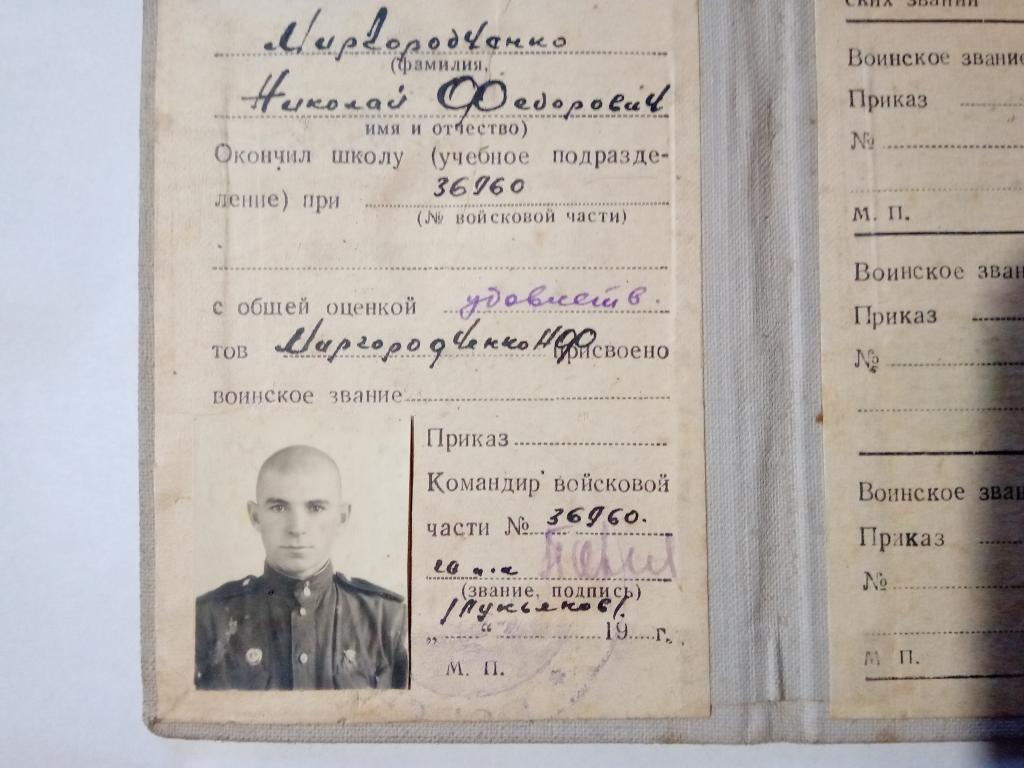 Миргородченко
(фамилия,
Николай Федорович
имя и отчество)
Окончил школу (учебное подразде-
ление) при 36960
(№ войсковой части)
с общей оценкой удовлетв.
тов Миргородченко НФ присвоено
воинское звание
Приказ
Командир войсковой
части № 36960.
(звание, подпись)
/Лукьянов/.
„ “ 19 г.
М. П.
ских званий
Воинское звание
Приказ
№
М. П.
Воинское зван
Приказ
№
Воинское зван
Приказ
№
М П.